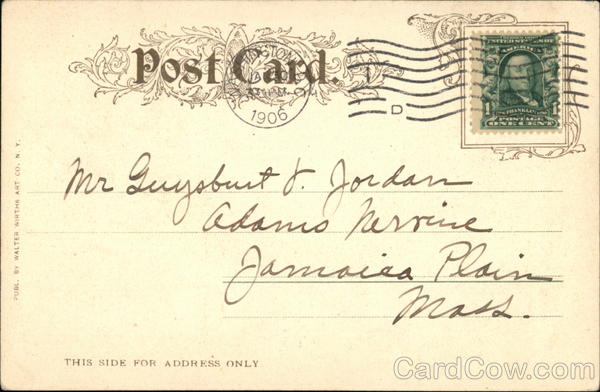 Post Card.
1906
D
UNITED STATES OF AMERICA
FRANKLIN
POSTAGE
ONE CENT
Mr Guysburt J. Jordan
Adams Nervine
Jamaica Plain
Mass.
PUBL. BY WALTER WIRTHS ART CO. N. Y.
THIS SIDE FOR ADDRESS ONLY
CardCow.com